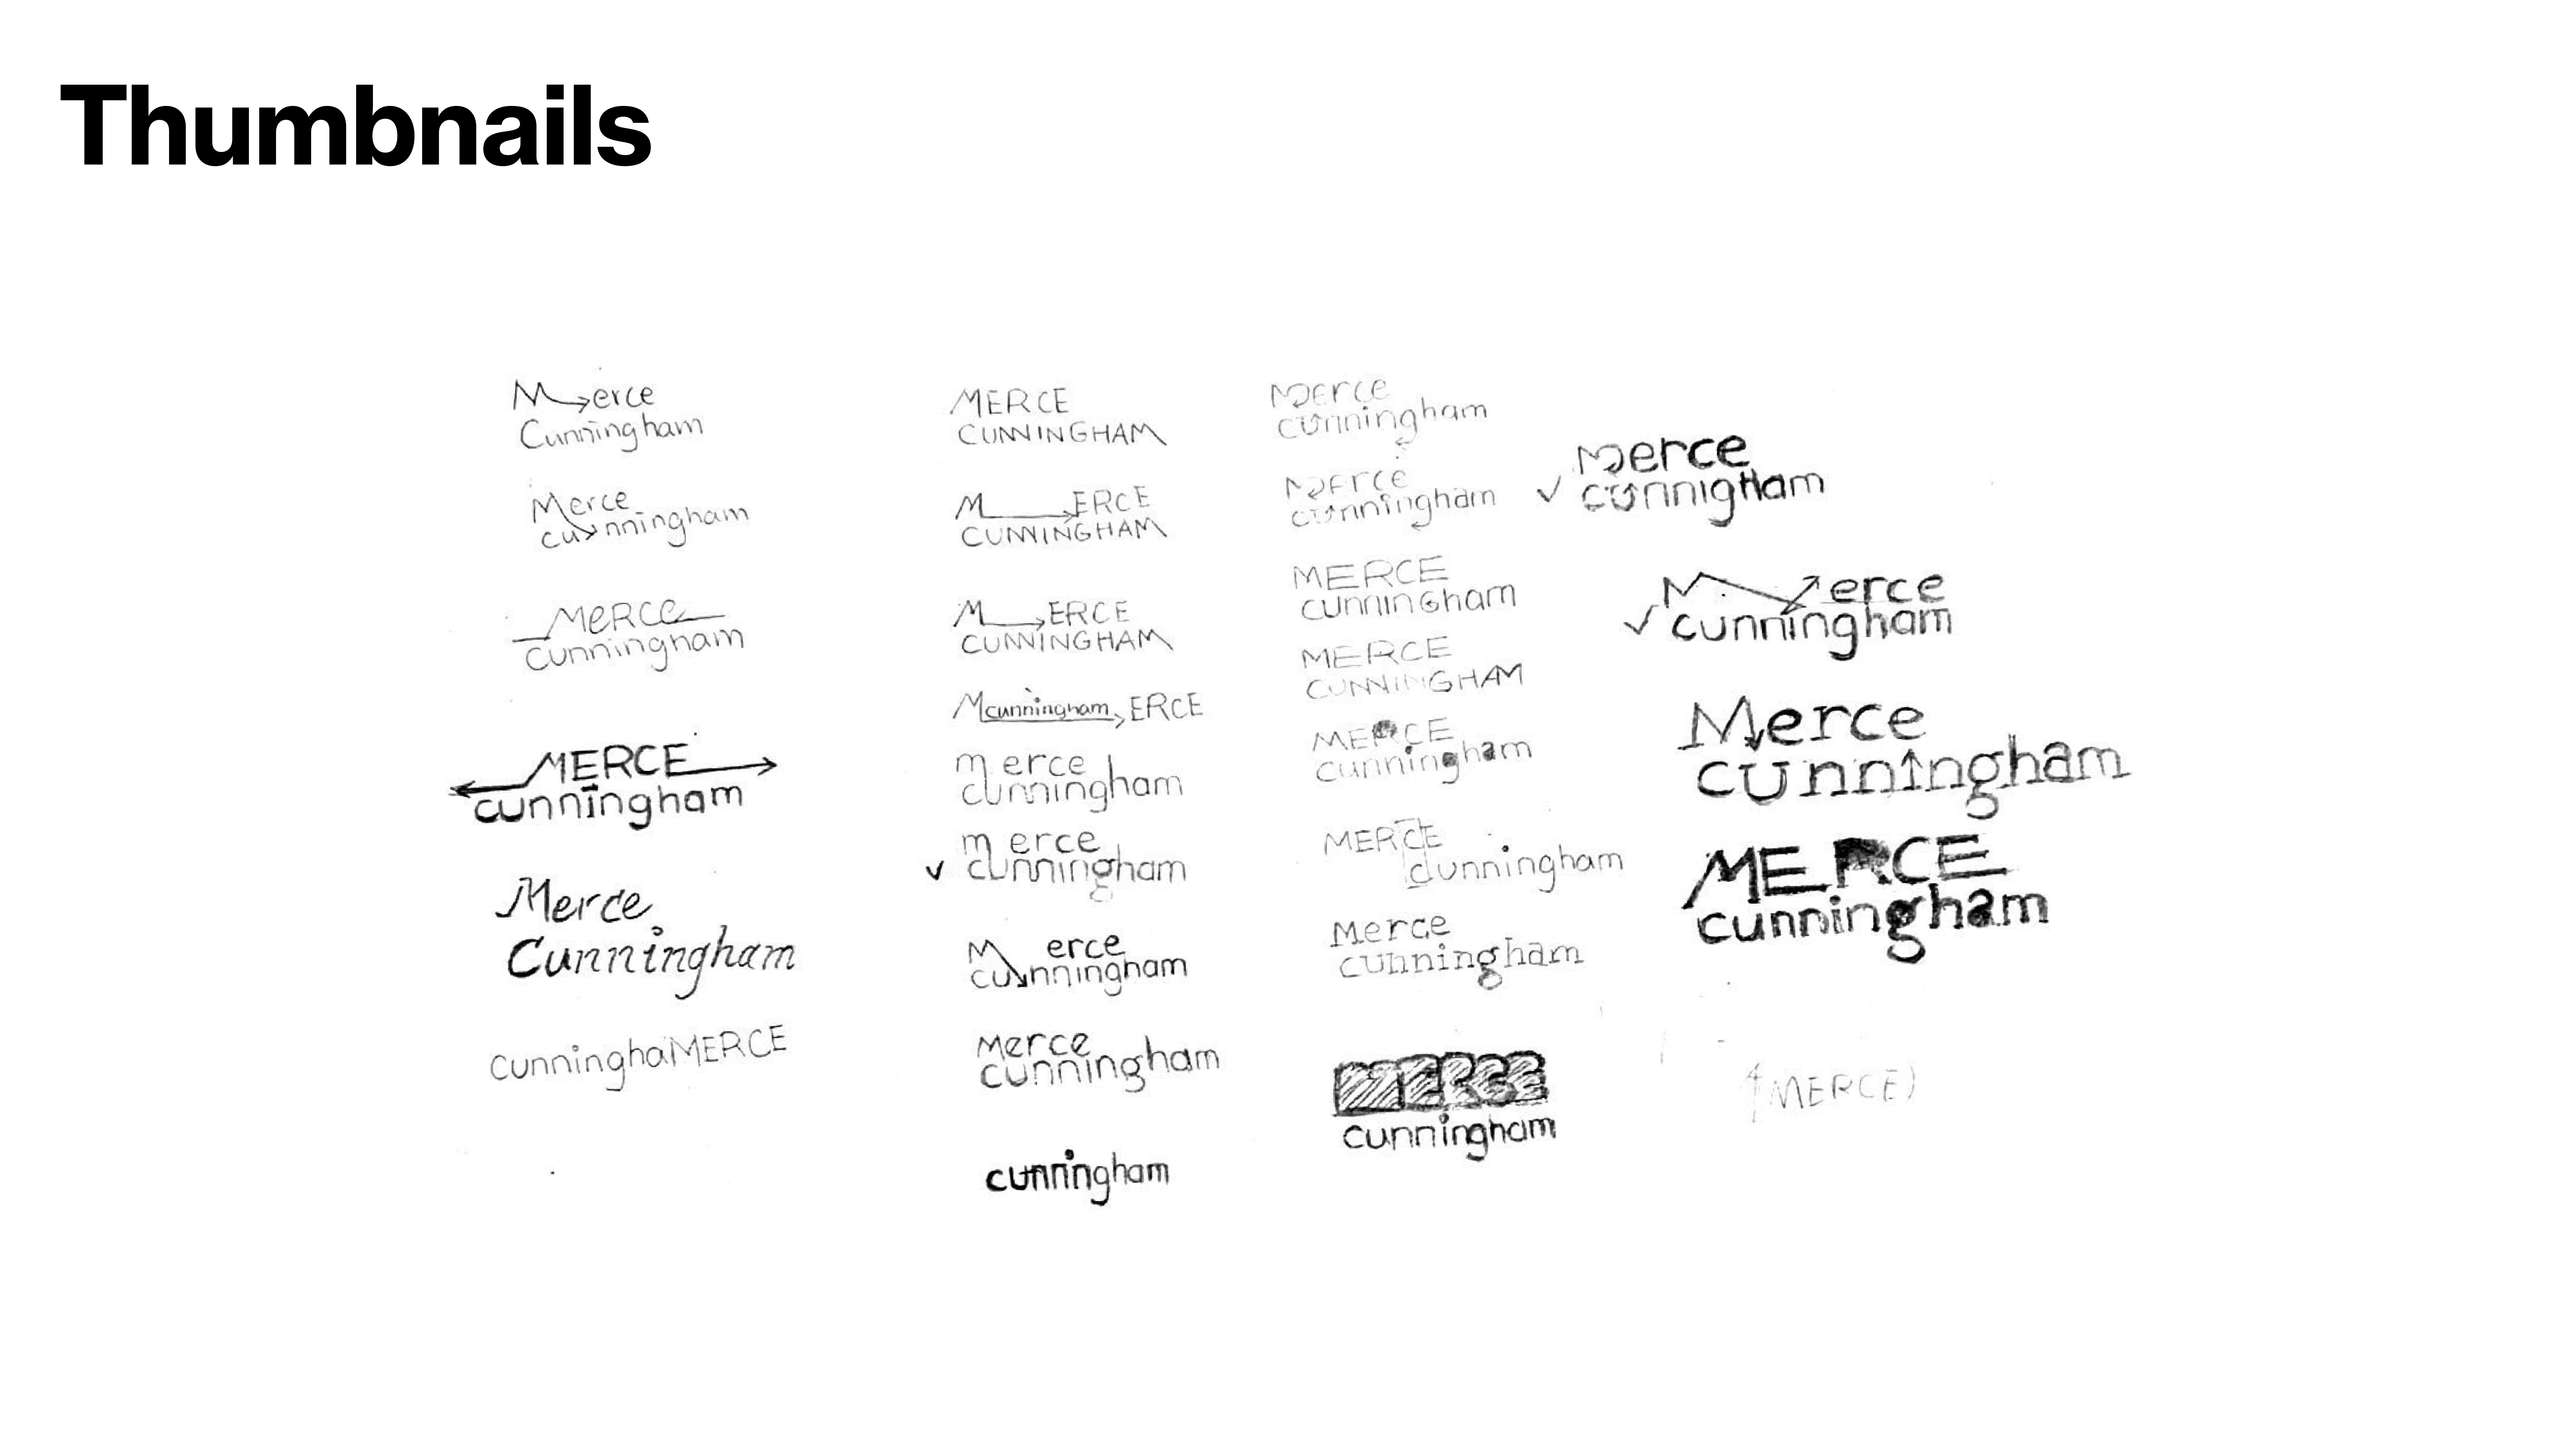 Thumbnails
Merce
Cunningham
Merce
cunningham
MeRCe
cunningham
MERCE
cunningham
Merce
Cunningham
cunninghaMERCE
MERCE
CUNNINGHAM
M ERCE
CUNNINGHAM
M ERCE
CUNNINGHAM
M cunningham ERCE
merce
cunningham
merce
cunningham
M erce
cunningham
Merce
cunningham
cunningham
Merce
cunningham
Merce
cunningham
MERCE
cunninGham
MERCE
CUNNINGHAM
MERCE
cunningham
MERCE
cunningham
Merce
cunningham
MERCE
cunningham
Merce
cunnigHam
M erce
cunningham
Merce
cunningham
MERCE
cunningham
(MERCE)